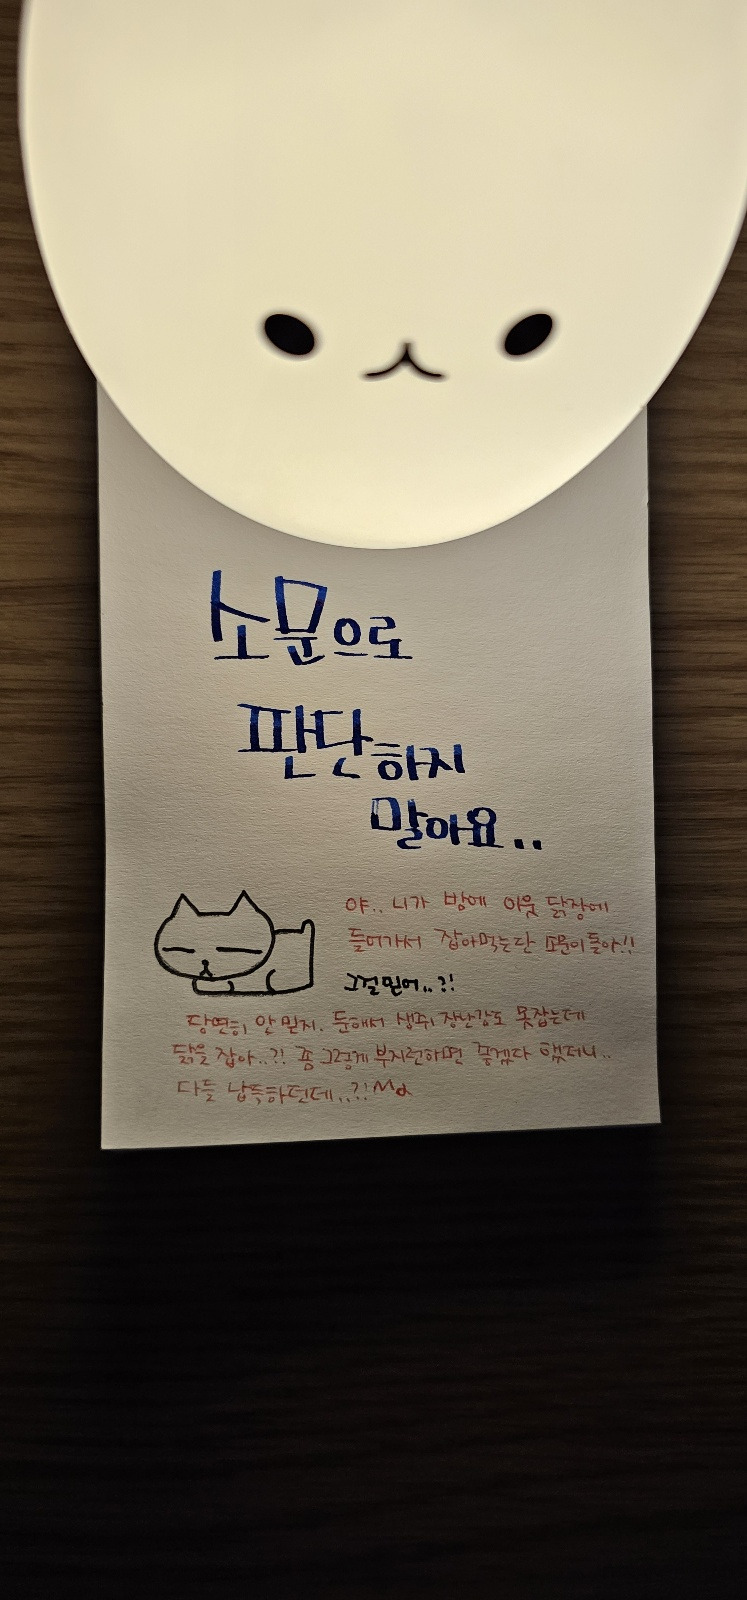 소문으로
판단하지
말아요..
야.. 니가 밤에 이웃 닭장에
들어가서 잡아먹는단 소문이 돌아!!
그걸 믿어..?!
당연히 안 믿지. 둔해서 생쥐 장난감도 못잡는데
닭을 잡아..?! 좀 그렇게 부지런하면 좋겠다 했더니..
다들 납득하던데..?!